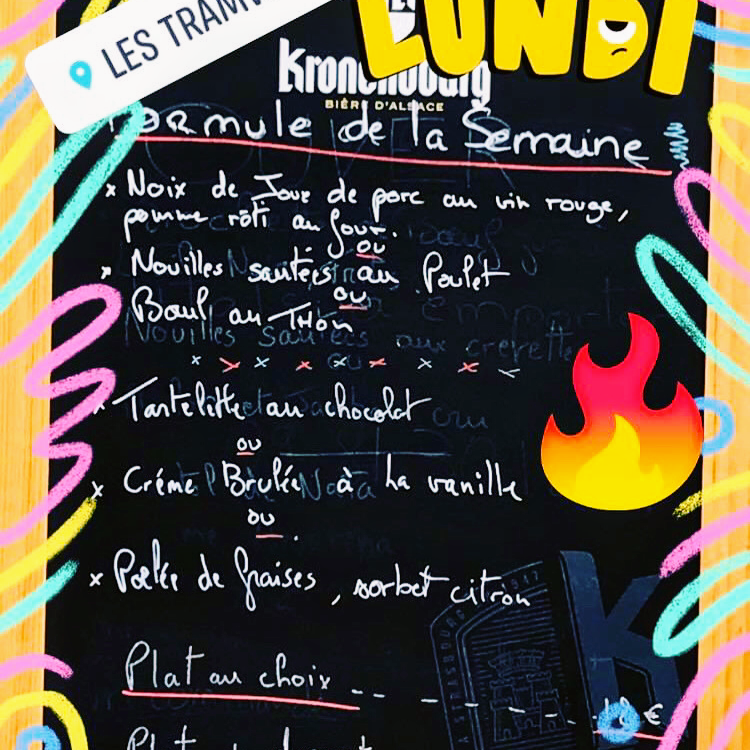 LES TRAMW
LUNDI
Kronenbourg
BIÈRE D'ALSACE
Formule de la Semaine
x Noix de Joue de porc au vin rouge,
pomme rôti au four.
ou
x Nouilles sautées au Poulet
ou
Boul au THon
x x x x x x x x x
x Tartelette au chocolat
ou
x Créme Brulée à La vanille
ou
x Poelée de fraises, sorbet citron
K
A STRASBOURG
Plat au choix
€
Plat